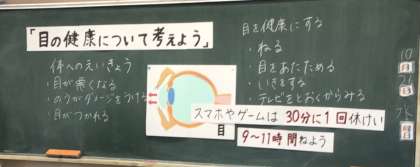 「目の健康について考えよう」
体へのえいきょう
・目が悪くなる
・のうがダメージをうける
・目がつかれる
目
目を健康にする
・ねる
・目をあたためる
・いきをする
・テレビをとおくからみる
スマホやゲームは 30分に1回休けい
9～11時間ねよう